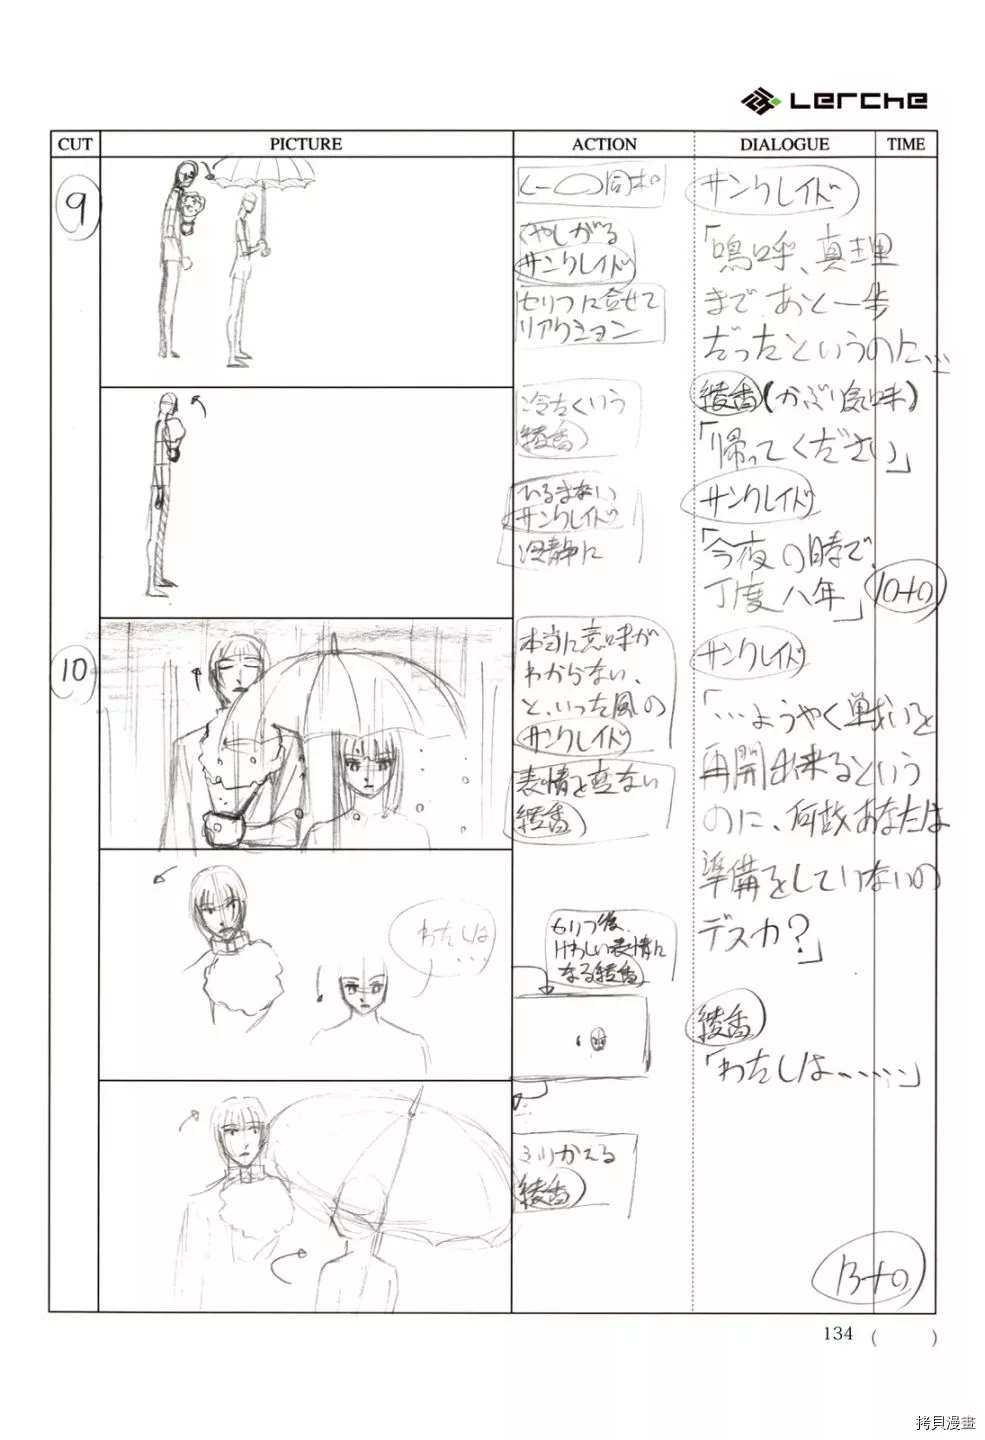 Lerche
CUT
PICTURE
ACTION
DIALOGUE
TIME
9
くやしがる
サンクレイド
セリフに合せて
リアクション
サンクレイド
「嗚呼、真理
まで、あと一歩
だったというのに…
冷たくいう
綾香
綾香(かぶり気味)
「帰ってください」
ひるまない
サンクレイド
冷静に
サンクレイド
「今夜の時で、
丁度八年」
10+0
10
本当に意味が
わからない、
と、いった風の
サンクレイド
表情を変ない
綾香
サンクレイド
「…ようやく戦いを
再開出来るという
のに、何故あなたは
準備をしていないの
デスカ?」
わたしは
…
セリフ後、
けわしい表情に
なる綾香
綾香
「わたしは……」
ふりかえる
綾香
13+0
134 ( )
拷貝漫畫